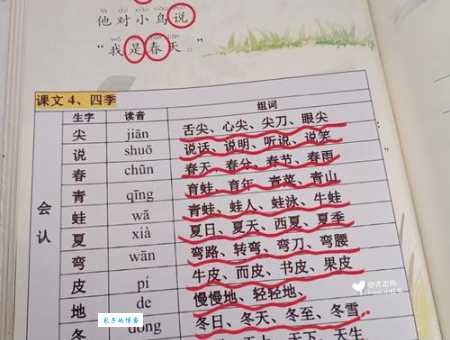 他对小鸟说
“我是春天。”
课文 4、四季
生字 读音 组词
会认
尖 jiān 舌尖、心尖、尖刀、眼尖
说 shuō 说话、说明、听说、说笑
春 chūn 春天、春分、春节、春雨
青 qīng 青蛙、青年、青菜、青山
蛙 wā 青蛙、蛙人、蛙泳、牛蛙
夏 xià 夏日、夏天、西夏、夏季
弯 wān 弯路、转弯、弯刀、弯腰
皮 pí 牛皮、面皮、书皮、果皮
地 de 慢慢地、轻轻地、
冬 dōng 冬日、冬天、冬至、冬雪